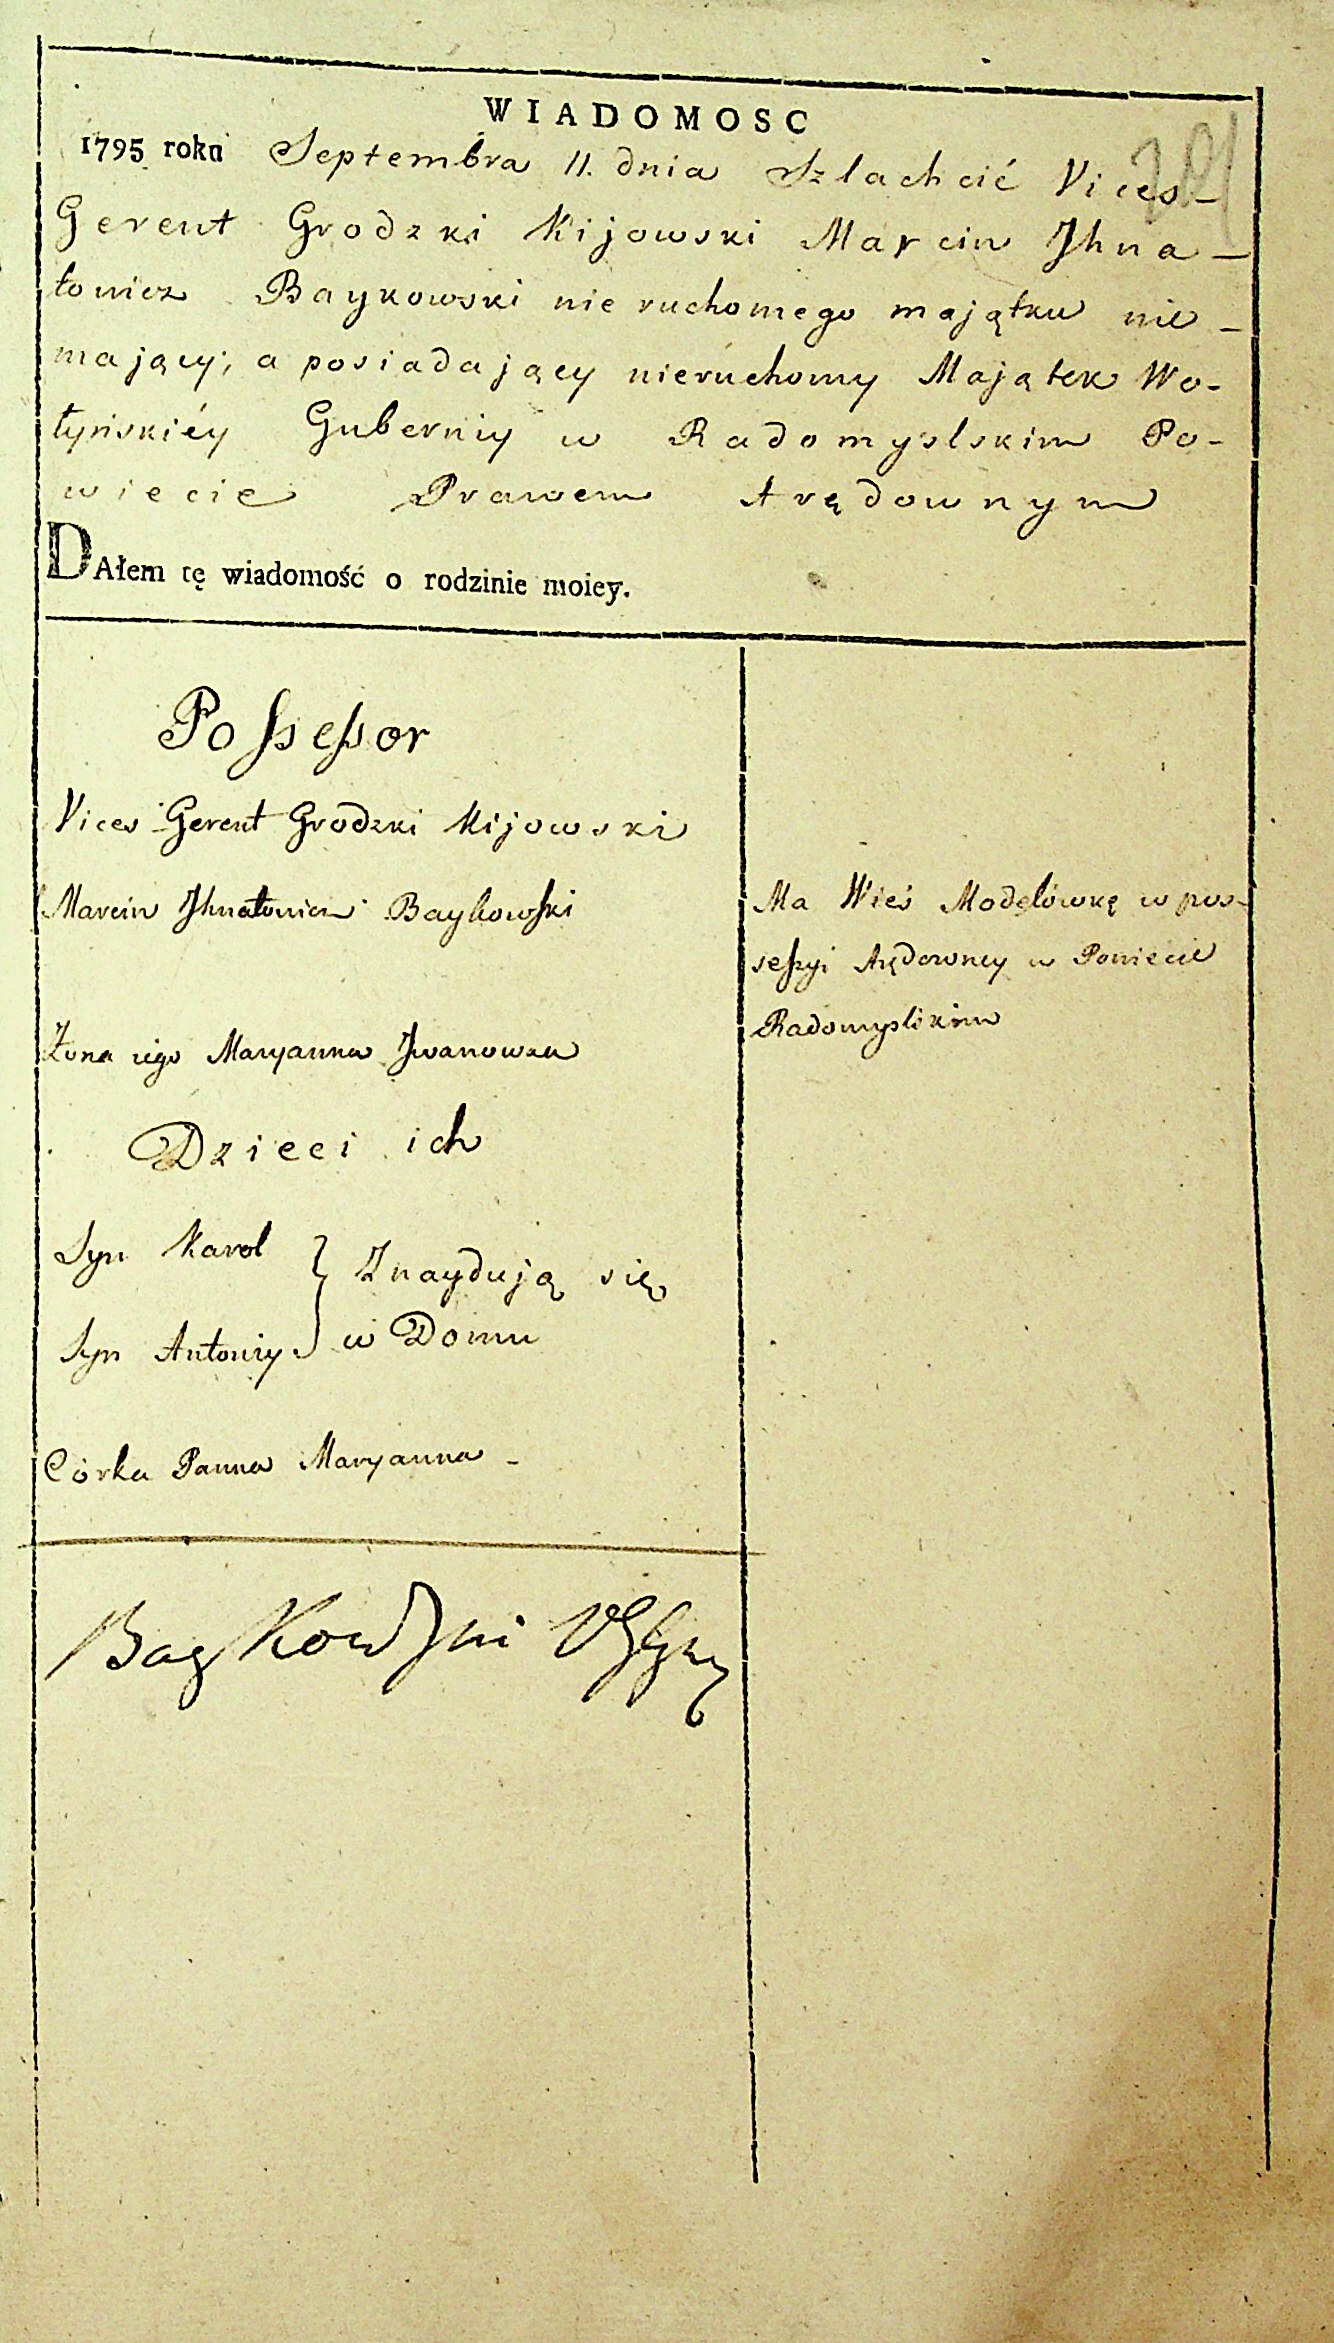 WIADOMOSC
1795 roku Septembra 11. dnia Szlachcić Vices-
Gerent Grodzki Kijowski Marcin Jhna-
towicz Baykowski nie ruchomego majątku nie-
mający, a posiadający nieruchomy Majątek Wo-
łyńskiéy Guberniy w Radomyslskim Po-
wiecie Prawem Arędownym
DAłem tę wiadomość o rodzinie moiey.
Possessor
Vices Gerent Grodzki Kijowski
Marcin Jhnatowicz Baykowski
Ma Wieś Modelówkę w pos-
sessyi Arędowney w Powiecie
Radomyslskim
Zona iego Maryanna Jwanowska
Dzieci ich
Syn Karol } Znaydują się
Syn Antoniy } w Domu
Córka Panna Maryanna -
Baykowski